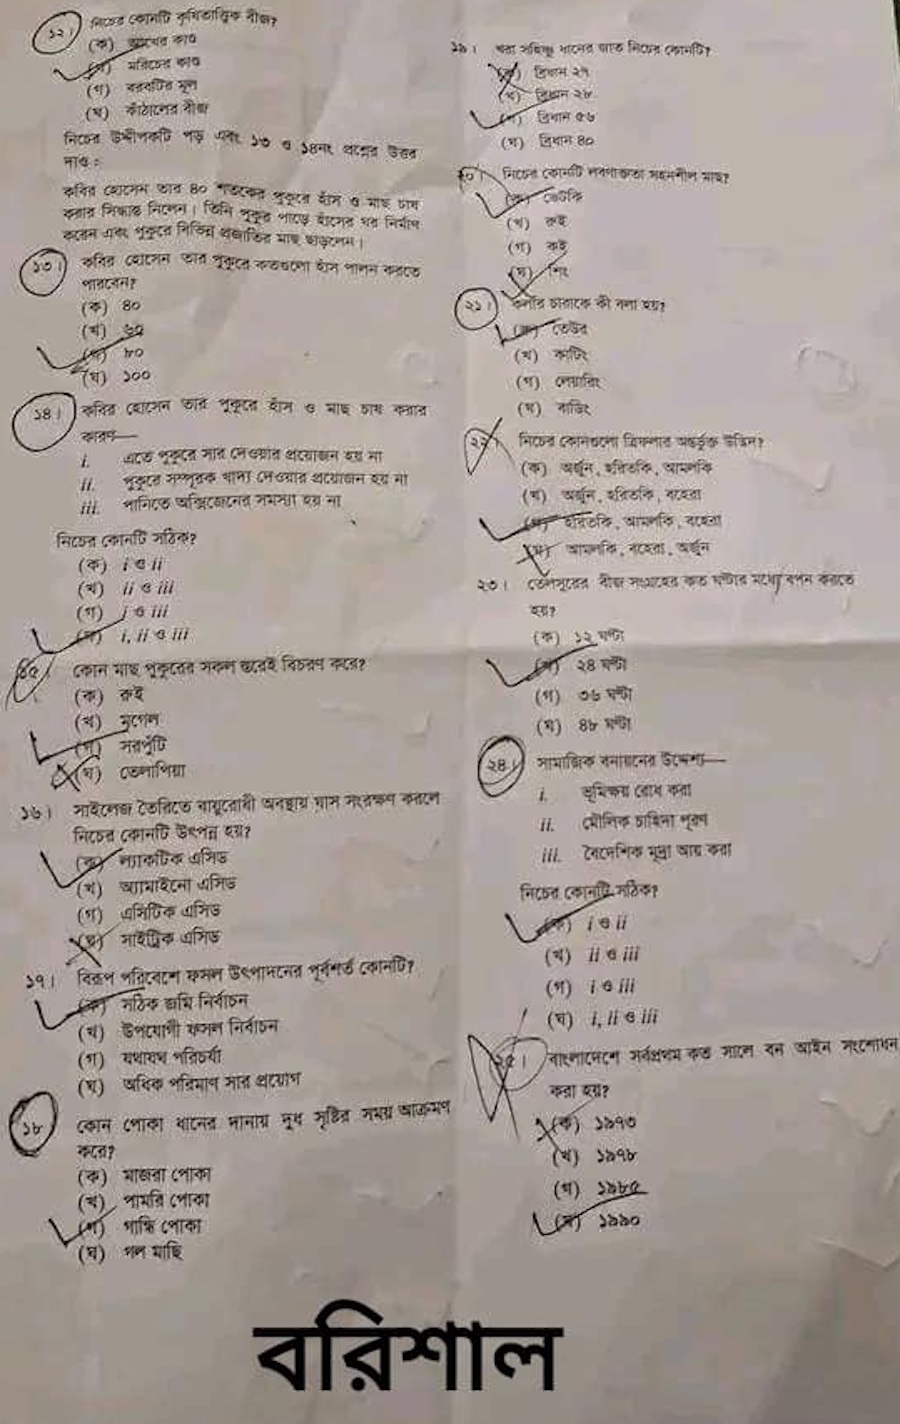 ১২। নিচের কোনটি কৃষিতাত্ত্বিক বীজ?
(ক) আখের কাণ্ড
(খ) মরিচের কাণ্ড
(গ) বরবটির মূল
(ঘ) কাঁঠালের বীজ
নিচের উদ্দীপকটি পড় এবং ১৩ ও ১৪নং প্রশ্নের উত্তর
দাও :
কবির হোসেন তার ৪০ শতকের পুকুরে হাঁস ও মাছ চাষ
করার সিদ্ধান্ত নিলেন। তিনি পুকুর পাড়ে হাঁসের ঘর নির্মাণ
করেন এবং পুকুরে বিভিন্ন প্রজাতির মাছ ছাড়লেন।
১৩। কবির হোসেন তার পুকুরে কতগুলো হাঁস পালন করতে
পারবেন?
(ক) ৪০
(খ) ৬০
(গ) ৮০
(ঘ) ১০০
১৪। কবির হোসেন তার পুকুরে হাঁস ও মাছ চাষ করার
কারণ—
i. এতে পুকুরে সার দেওয়ার প্রয়োজন হয় না
ii. পুকুরে সম্পূরক খাদ্য দেওয়ার প্রয়োজন হয় না
iii. পানিতে অক্সিজেনের সমস্যা হয় না
নিচের কোনটি সঠিক?
(ক) i ও ii
(খ) ii ও iii
(গ) i ও iii
(ঘ) i, ii ও iii
১৫। কোন মাছ পুকুরের সকল স্তরেই বিচরণ করে?
(ক) রুই
(খ) মৃগেল
(গ) সরপুঁটি
(ঘ) তেলাপিয়া
১৬। সাইলেজ তৈরিতে বায়ুরোধী অবস্থায় ঘাস সংরক্ষণ করলে
নিচের কোনটি উৎপন্ন হয়?
(ক) ল্যাকটিক এসিড
(খ) অ্যামাইনো এসিড
(গ) এসিটিক এসিড
(ঘ) সাইট্রিক এসিড
১৭। বিরূপ পরিবেশে ফসল উৎপাদনের পূর্বশর্ত কোনটি?
(ক) সঠিক জমি নির্বাচন
(খ) উপযোগী ফসল নির্বাচন
(গ) যথাযথ পরিচর্যা
(ঘ) অধিক পরিমাণ সার প্রয়োগ
১৮ কোন পোকা ধানের দানায় দুধ সৃষ্টির সময় আক্রমণ
করে?
(ক) মাজরা পোকা
(খ) পামরি পোকা
(গ) গান্ধি পোকা
(ঘ) গল মাছি
১৯। খরা সহিষ্ণু ধানের জাত নিচের কোনটি?
(ক) ব্রিধান ২৭
(খ) ব্রিধান ২৮
(গ) ব্রিধান ৫৬
(ঘ) ব্রিধান ৪০
২০। নিচের কোনটি লবণাক্ততা সহনশীল মাছ?
(ক) ভেটকি
(খ) রুই
(গ) কই
(ঘ) শিং
২১। কলার চারাকে কী বলা হয়?
(ক) তেউড়
(খ) কাটিং
(গ) লেয়ারিং
(ঘ) বাডিং
২২। নিচের কোনগুলো ত্রিফলার অন্তর্ভুক্ত উদ্ভিদ?
(ক) অর্জুন, হরিতকি, আমলকি
(খ) অর্জুন, হরিতকি, বহেরা
(গ) হরিতকি, আমলকি, বহেরা
(ঘ) আমলকি, বহেরা, অর্জুন
২৩। তেলসুরের বীজ সংগ্রহের কত ঘণ্টার মধ্যে বপন করতে
হয়?
(ক) ১২ ঘণ্টা
(খ) ২৪ ঘণ্টা
(গ) ৩৬ ঘণ্টা
(ঘ) ৪৮ ঘণ্টা
২৪। সামাজিক বনায়নের উদ্দেশ্য—
i. ভূমিক্ষয় রোধ করা
ii. মৌলিক চাহিদা পূরণ
iii. বৈদেশিক মুদ্রা আয় করা
নিচের কোনটি সঠিক?
(ক) i ও ii
(খ) ii ও iii
(গ) i ও iii
(ঘ) i, ii ও iii
২৫। বাংলাদেশে সর্বপ্রথম কত সালে বন আইন সংশোধন
করা হয়?
(ক) ১৯৭৩
(খ) ১৯৭৮
(গ) ১৯৮৫
(ঘ) ১৯৯০
বরিশাল